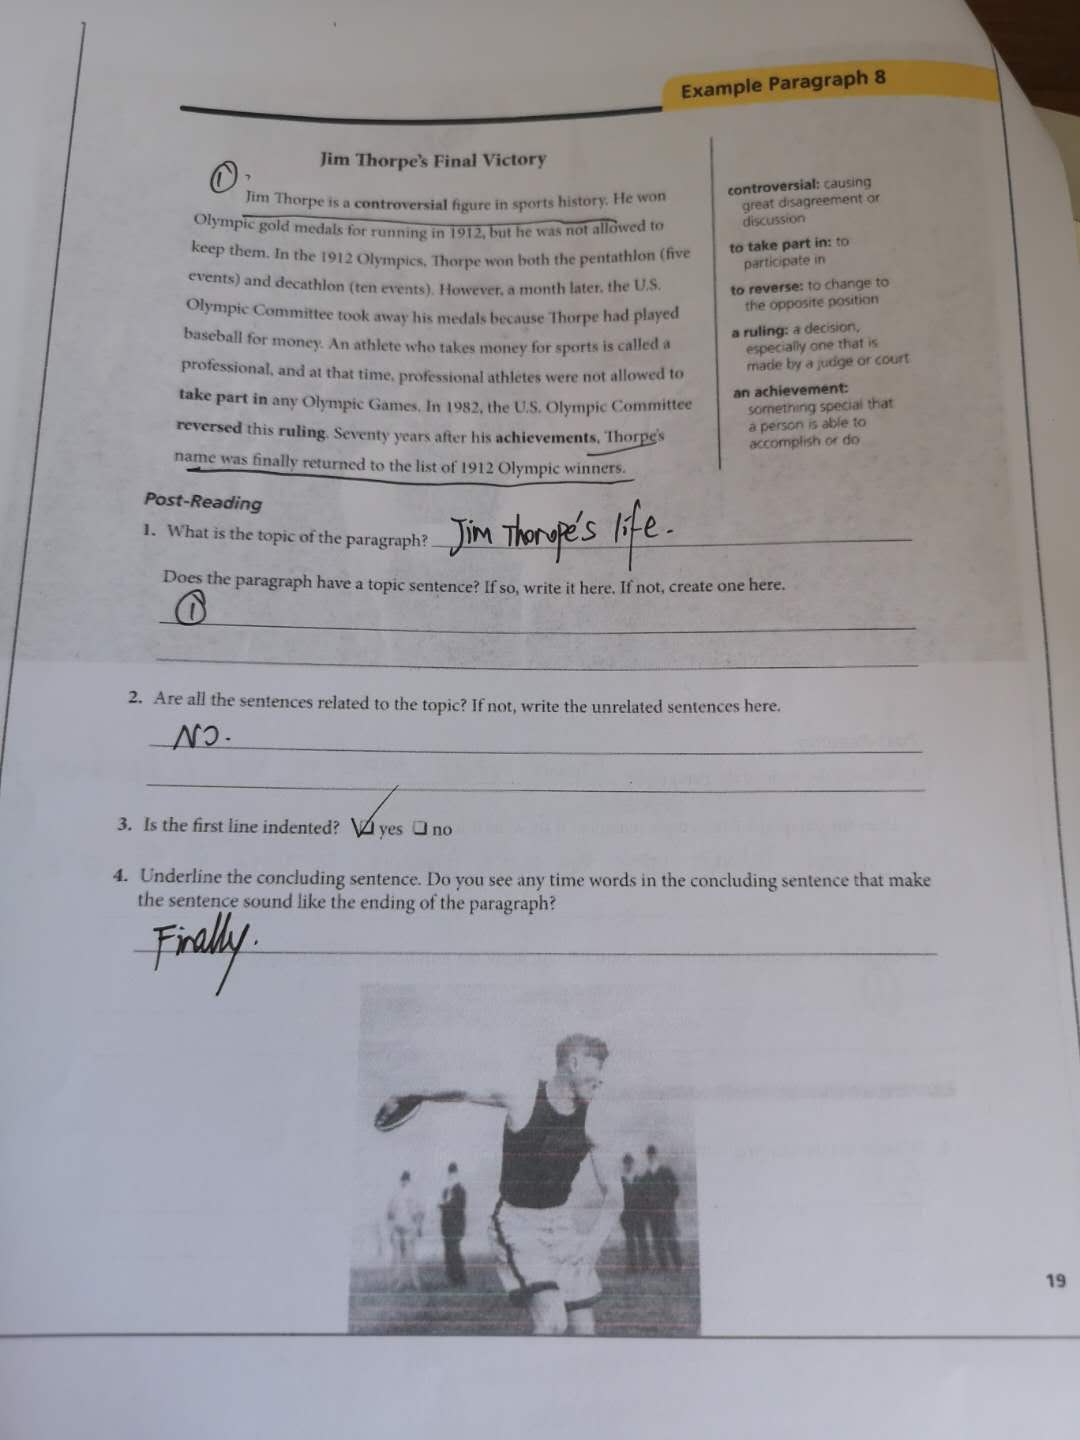 Example Paragraph 8
Jim Thorpe's Final Victory
①
Jim Thorpe is a controversial figure in sports history. He won
Olympic gold medals for running in 1912, but he was not allowed to
keep them. In the 1912 Olympics, Thorpe won both the pentathlon (five
events) and decathlon (ten events). However, a month later, the U.S.
Olympic Committee took away his medals because Thorpe had played
baseball for money. An athlete who takes money for sports is called a
professional, and at that time, professional athletes were not allowed to
take part in any Olympic Games. In 1982, the U.S. Olympic Committee
reversed this ruling. Seventy years after his achievements, Thorpe's
name was finally returned to the list of 1912 Olympic winners.
controversial: causing
great disagreement or
discussion
to take part in: to
participate in
to reverse: to change to
the opposite position
a ruling: a decision,
especially one that is
made by a judge or court
an achievement:
something special that
a person is able to
accomplish or do
Post-Reading
1. What is the topic of the paragraph? Jim Thorope's life.
Does the paragraph have a topic sentence? If so, write it here. If not, create one here.
①
2. Are all the sentences related to the topic? If not, write the unrelated sentences here.
NO.
3. Is the first line indented? ☑ yes ❏ no
4. Underline the concluding sentence. Do you see any time words in the concluding sentence that make
the sentence sound like the ending of the paragraph?
Finally.
19